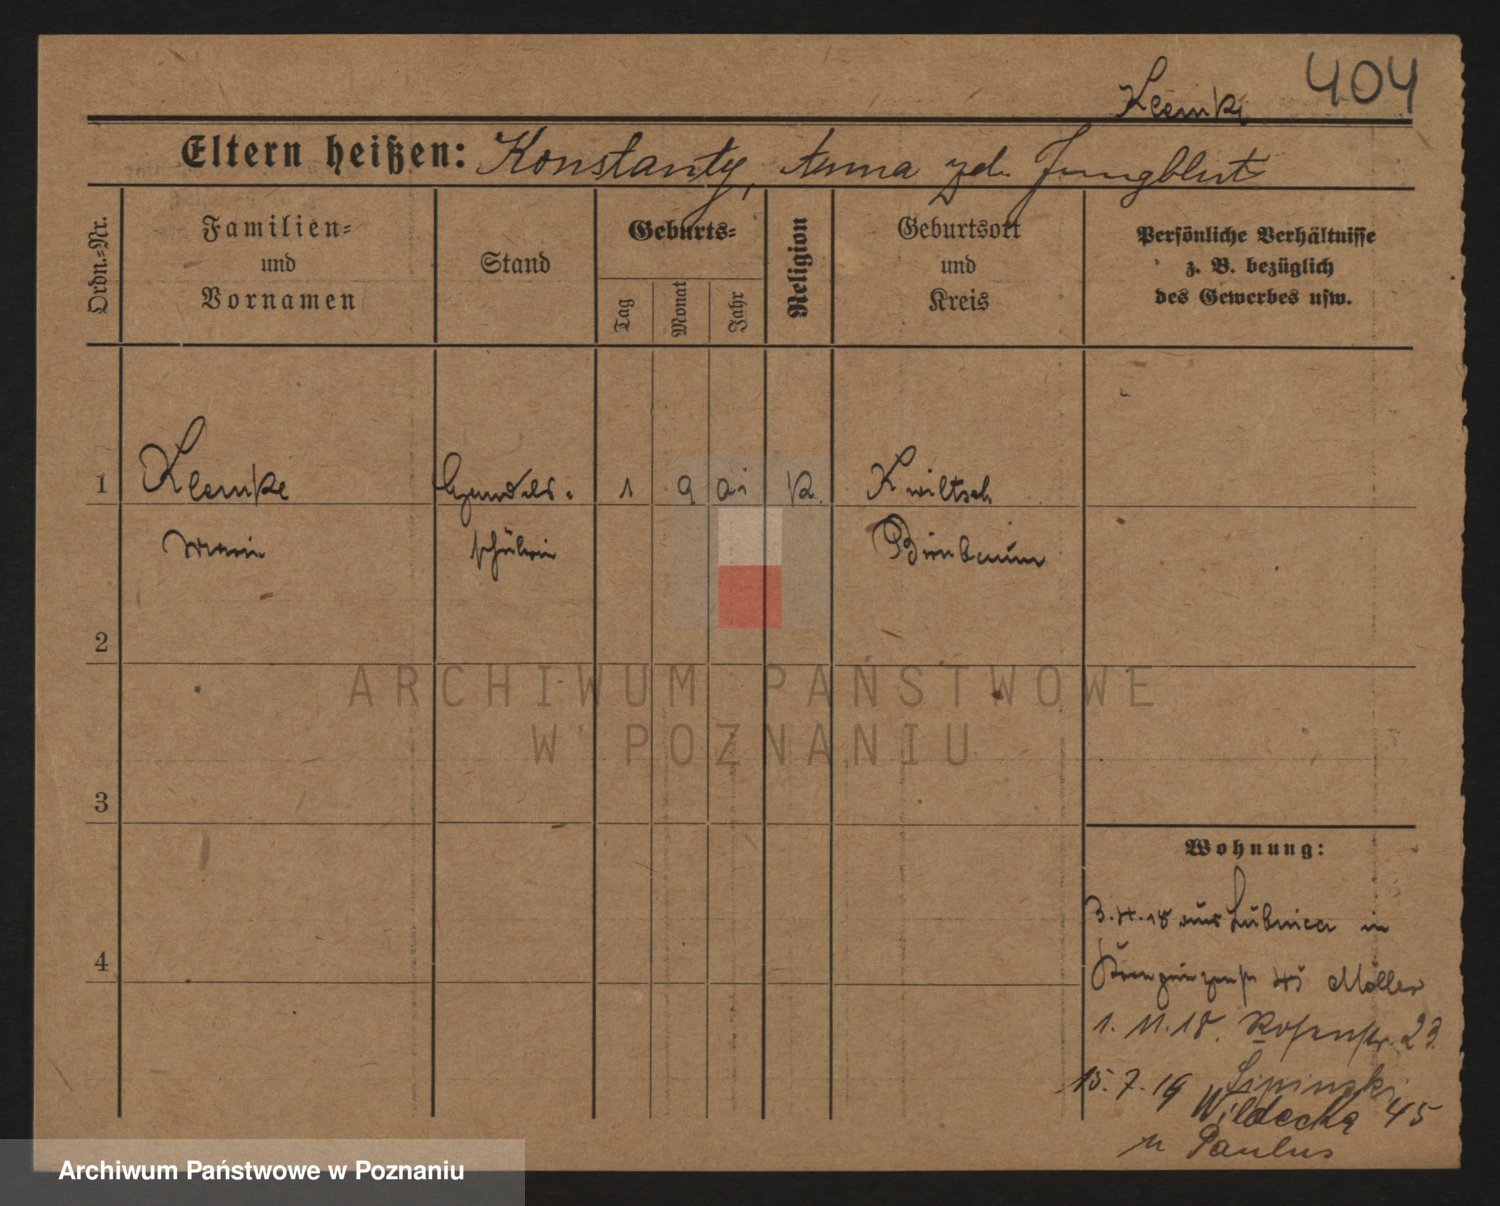 404
Klemke
Eltern heißen: Konstanty, Anna zd. Jungblut
Ordn.=Nr.
Familien=
und
Vornamen
Stand
Geburts=
Tag
Monat
Jahr
Religion
Geburtsort
und
Kreis
Persönliche Verhältnisse
z. B. bezüglich
des Gewerbes usw.
1 Klemke Handels- 1 9 01 K. Kwiltsch
Marie schülerin Birnbaum
2
ARCHIWUM PAŃSTWOWE
W POZNANIU
3
Wohnung:
3.4.18 aus Lubnica in
4
Kronprinzenstr 45 Möller
1.11.18. Rosenstr. 23
Lipinski
15.7.19 Wildecka 45
u Paulus
Archiwum Państwowe w Poznaniu